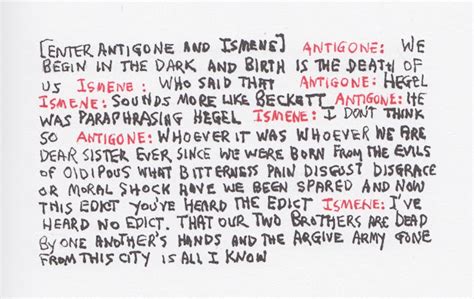 [ENTER ANTIGONE AND ISMENE] ANTIGONE: WE
BEGIN IN THE DARK AND BIRTH IS THE DEATH OF
US ISMENE: WHO SAID THAT ANTIGONE: HEGEL
ISMENE: SOUNDS MORE LIKE BECKETT ANTIGONE: HE
WAS PARAPHRASING HEGEL ISMENE: I DON'T THINK
SO ANTIGONE: WHOEVER IT WAS WHOEVER WE ARE
DEAR SISTER EVER SINCE WE WERE BORN FROM THE EVILS
OF OIDIPOUS WHAT BITTERNESS PAIN DISGUST DISGRACE
OR MORAL SHOCK HAVE WE BEEN SPARED AND NOW
THIS EDICT YOU'VE HEARD THE EDICT ISMENE: I'VE
HEARD NO EDICT. THAT OUR TWO BROTHERS ARE DEAD
BY ONE ANOTHER'S HANDS AND THE ARGIVE ARMY GONE
FROM THIS CITY IS ALL I KNOW